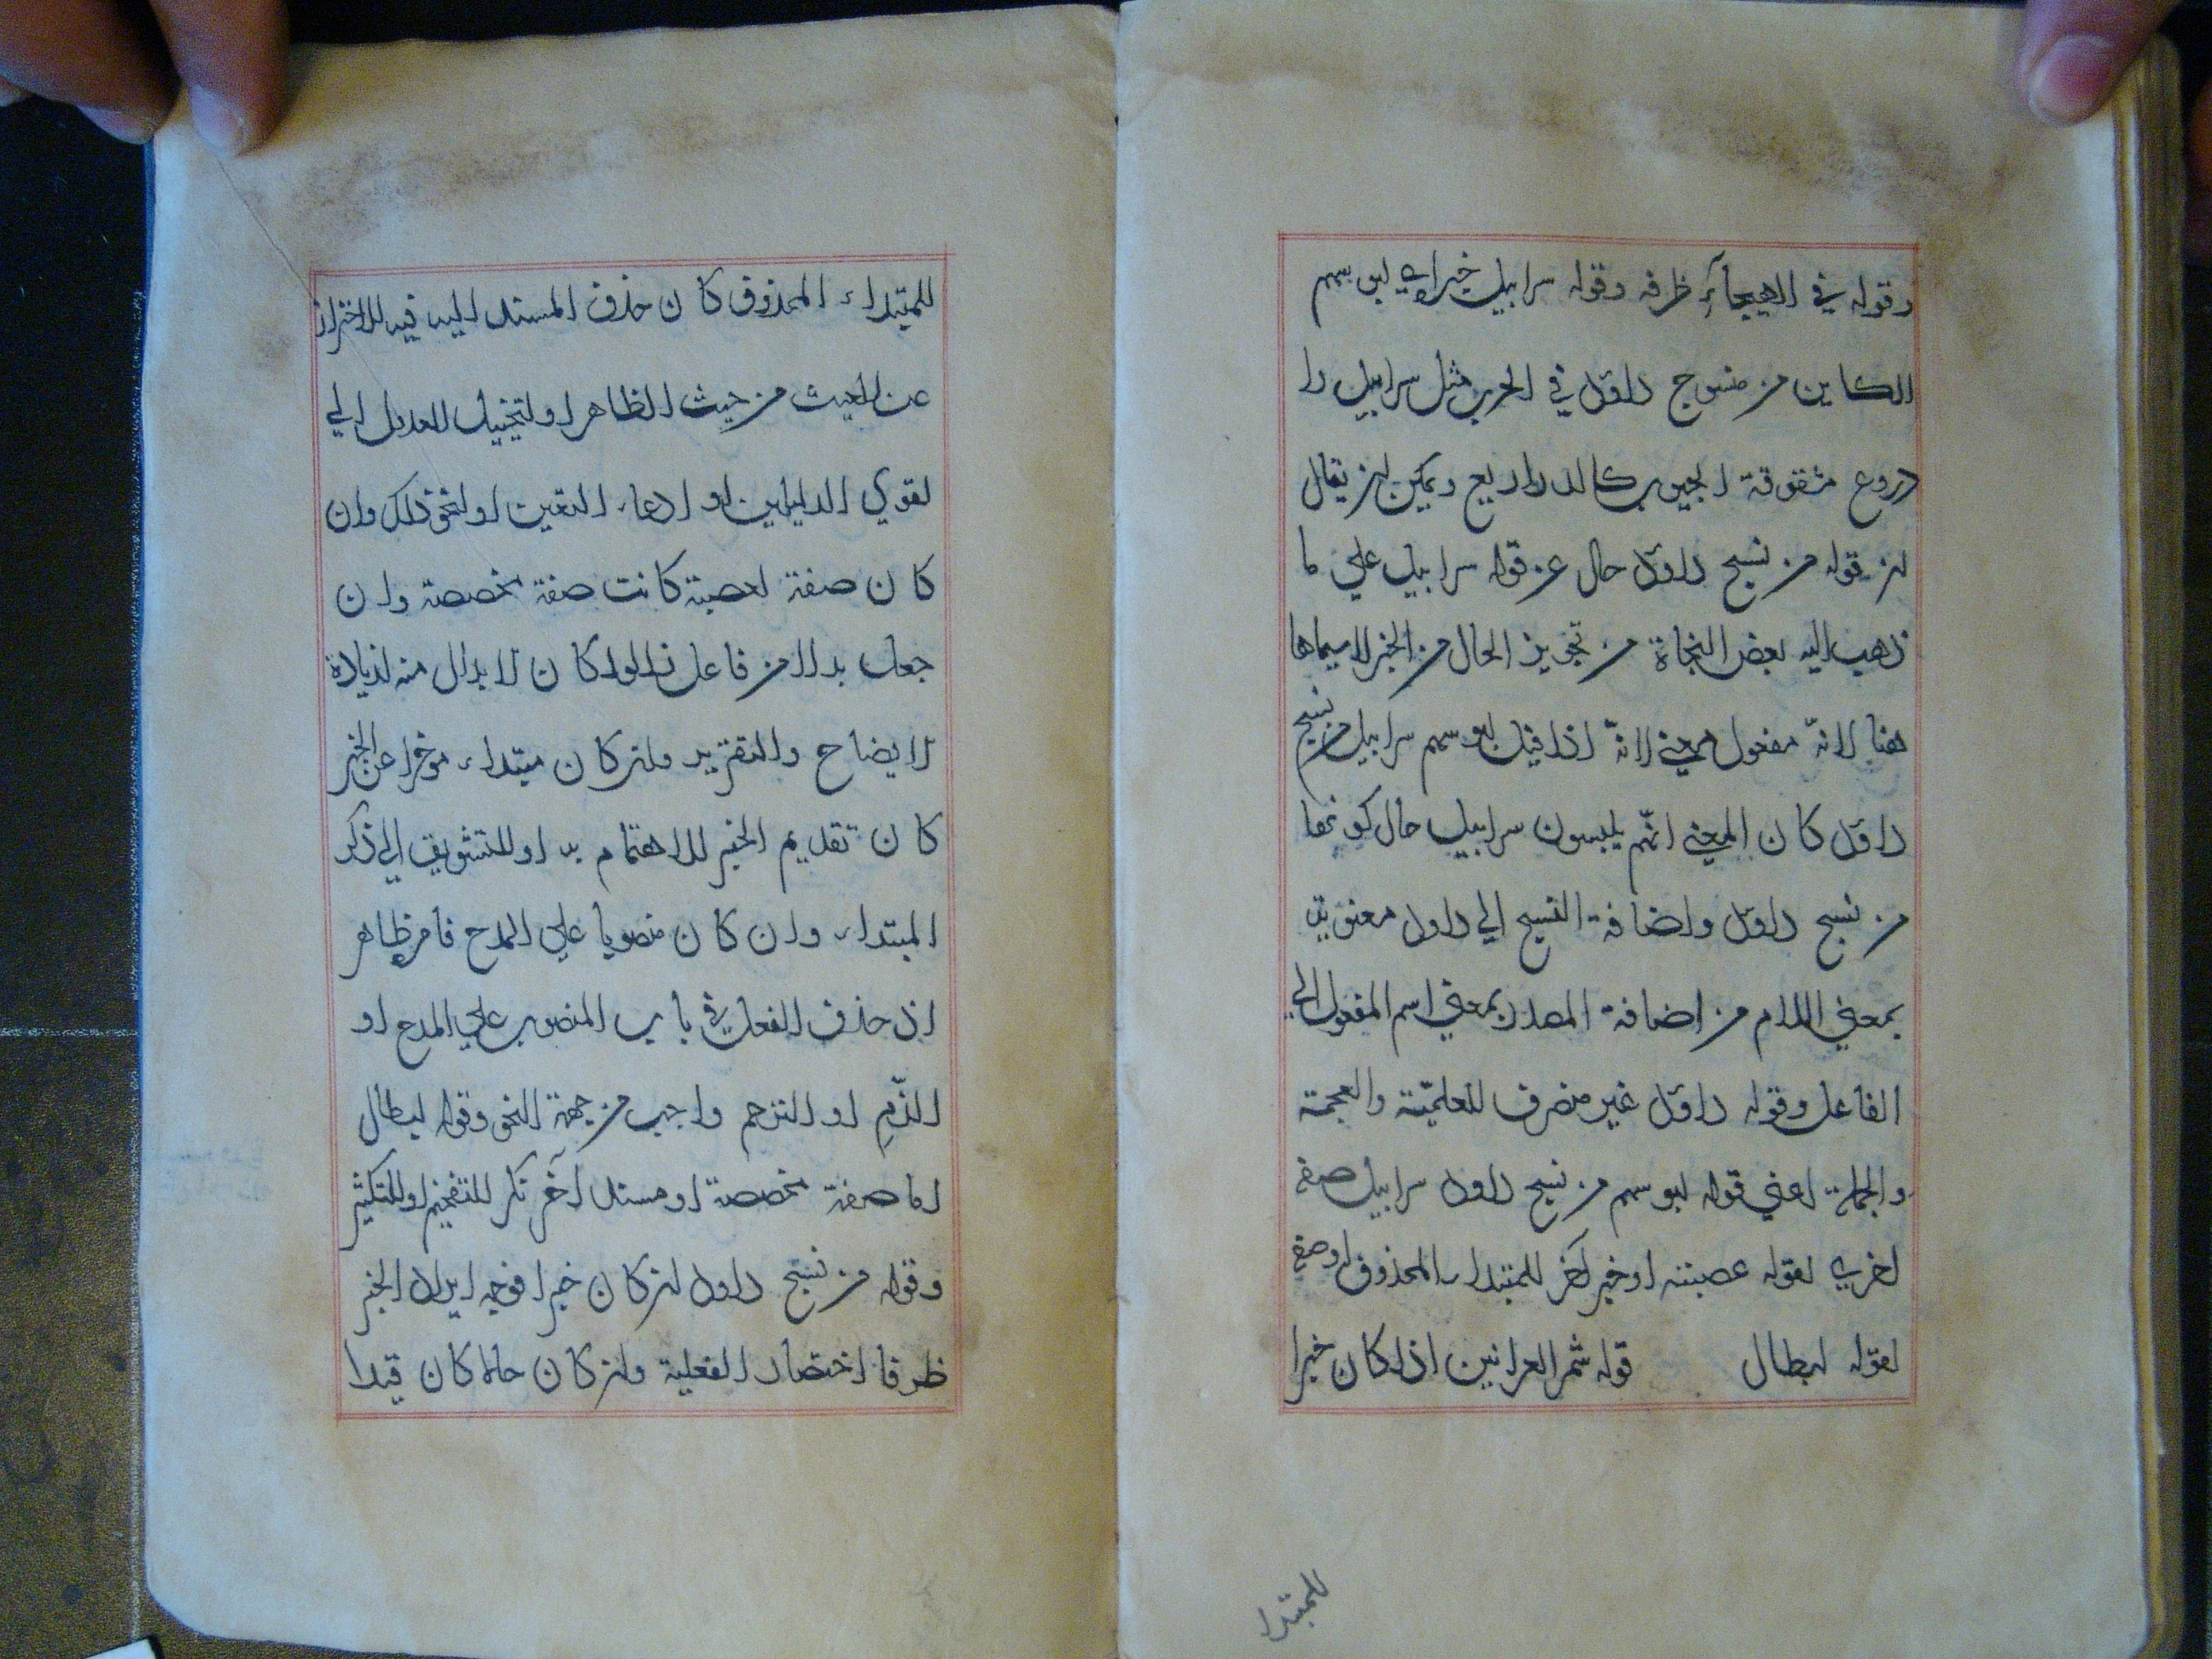 وقوله في الهيجاء ظرفه وقوله سرابيل خبر اي لبوسهم
الكاين من منسوج داود في الحرب مثل سرابيل را
دروع مشقوقة الجيوب كالدراريع ويمكن ان يقال
ان قوله من نسج داود حال عن قوله سرابيل علي ما
ذهب اليه بعض النحاة من تجويز الحال من الخبر لاسيما ها
هنا لانّه مفعول معني لانّه اذا قيل لبوسهم سرابيل من نسج
داود كان المعني انّهم يلبسون سرابيل حال كونها
من نسج داود واضافة النسج الي داود معنوية
بمعني اللام من اضافة المصدر بمعني اسم المفعول الي
الفاعل وقوله داود غير منصرف للعلميّة والعجمة
والجملة اعني قوله لبوسهم من نسج داود سرابيل صفة
اخري لقوله عصبته او خبر آخر للمبتداء المحذوف او صفة
لقوله لبطال قوله شم العرانين اذا كان خبرا
للمبتدا
للمبتداء المحذوف كان حذف المسند اليه فيه للاحتراز
عن العبث من حيث الظاهر او لتخييل العدول الي
اقوي الدليلين او ادعاء التعين او لنحو ذلك وان
كان صفة لعصبة كانت صفة مخصصة وان
جعل بدلا من فاعل زالوا كان الابدال منه لزيادة
الايضاح والتقرير وان كان مبتداء موخرا عن الخبر
كان تقديم الخبر للاهتمام به او للتشويق الي ذكر
المبتداء وان كان منصوبا علي المدح فامر ظاهر
اذ حذف الفعل في باب المنصوب علي المدح او
الذّم او الترحم واجب من جهة النحو وقوله لبطال
اما صفة مخصصة او مسند آخر نكر للتفخيم او للتكثير
وقوله من نسج داود ان كان خبرا فوجه ايراد الخبر
ظرفا اختصار الفعلية وان كان حالا كان قيدا